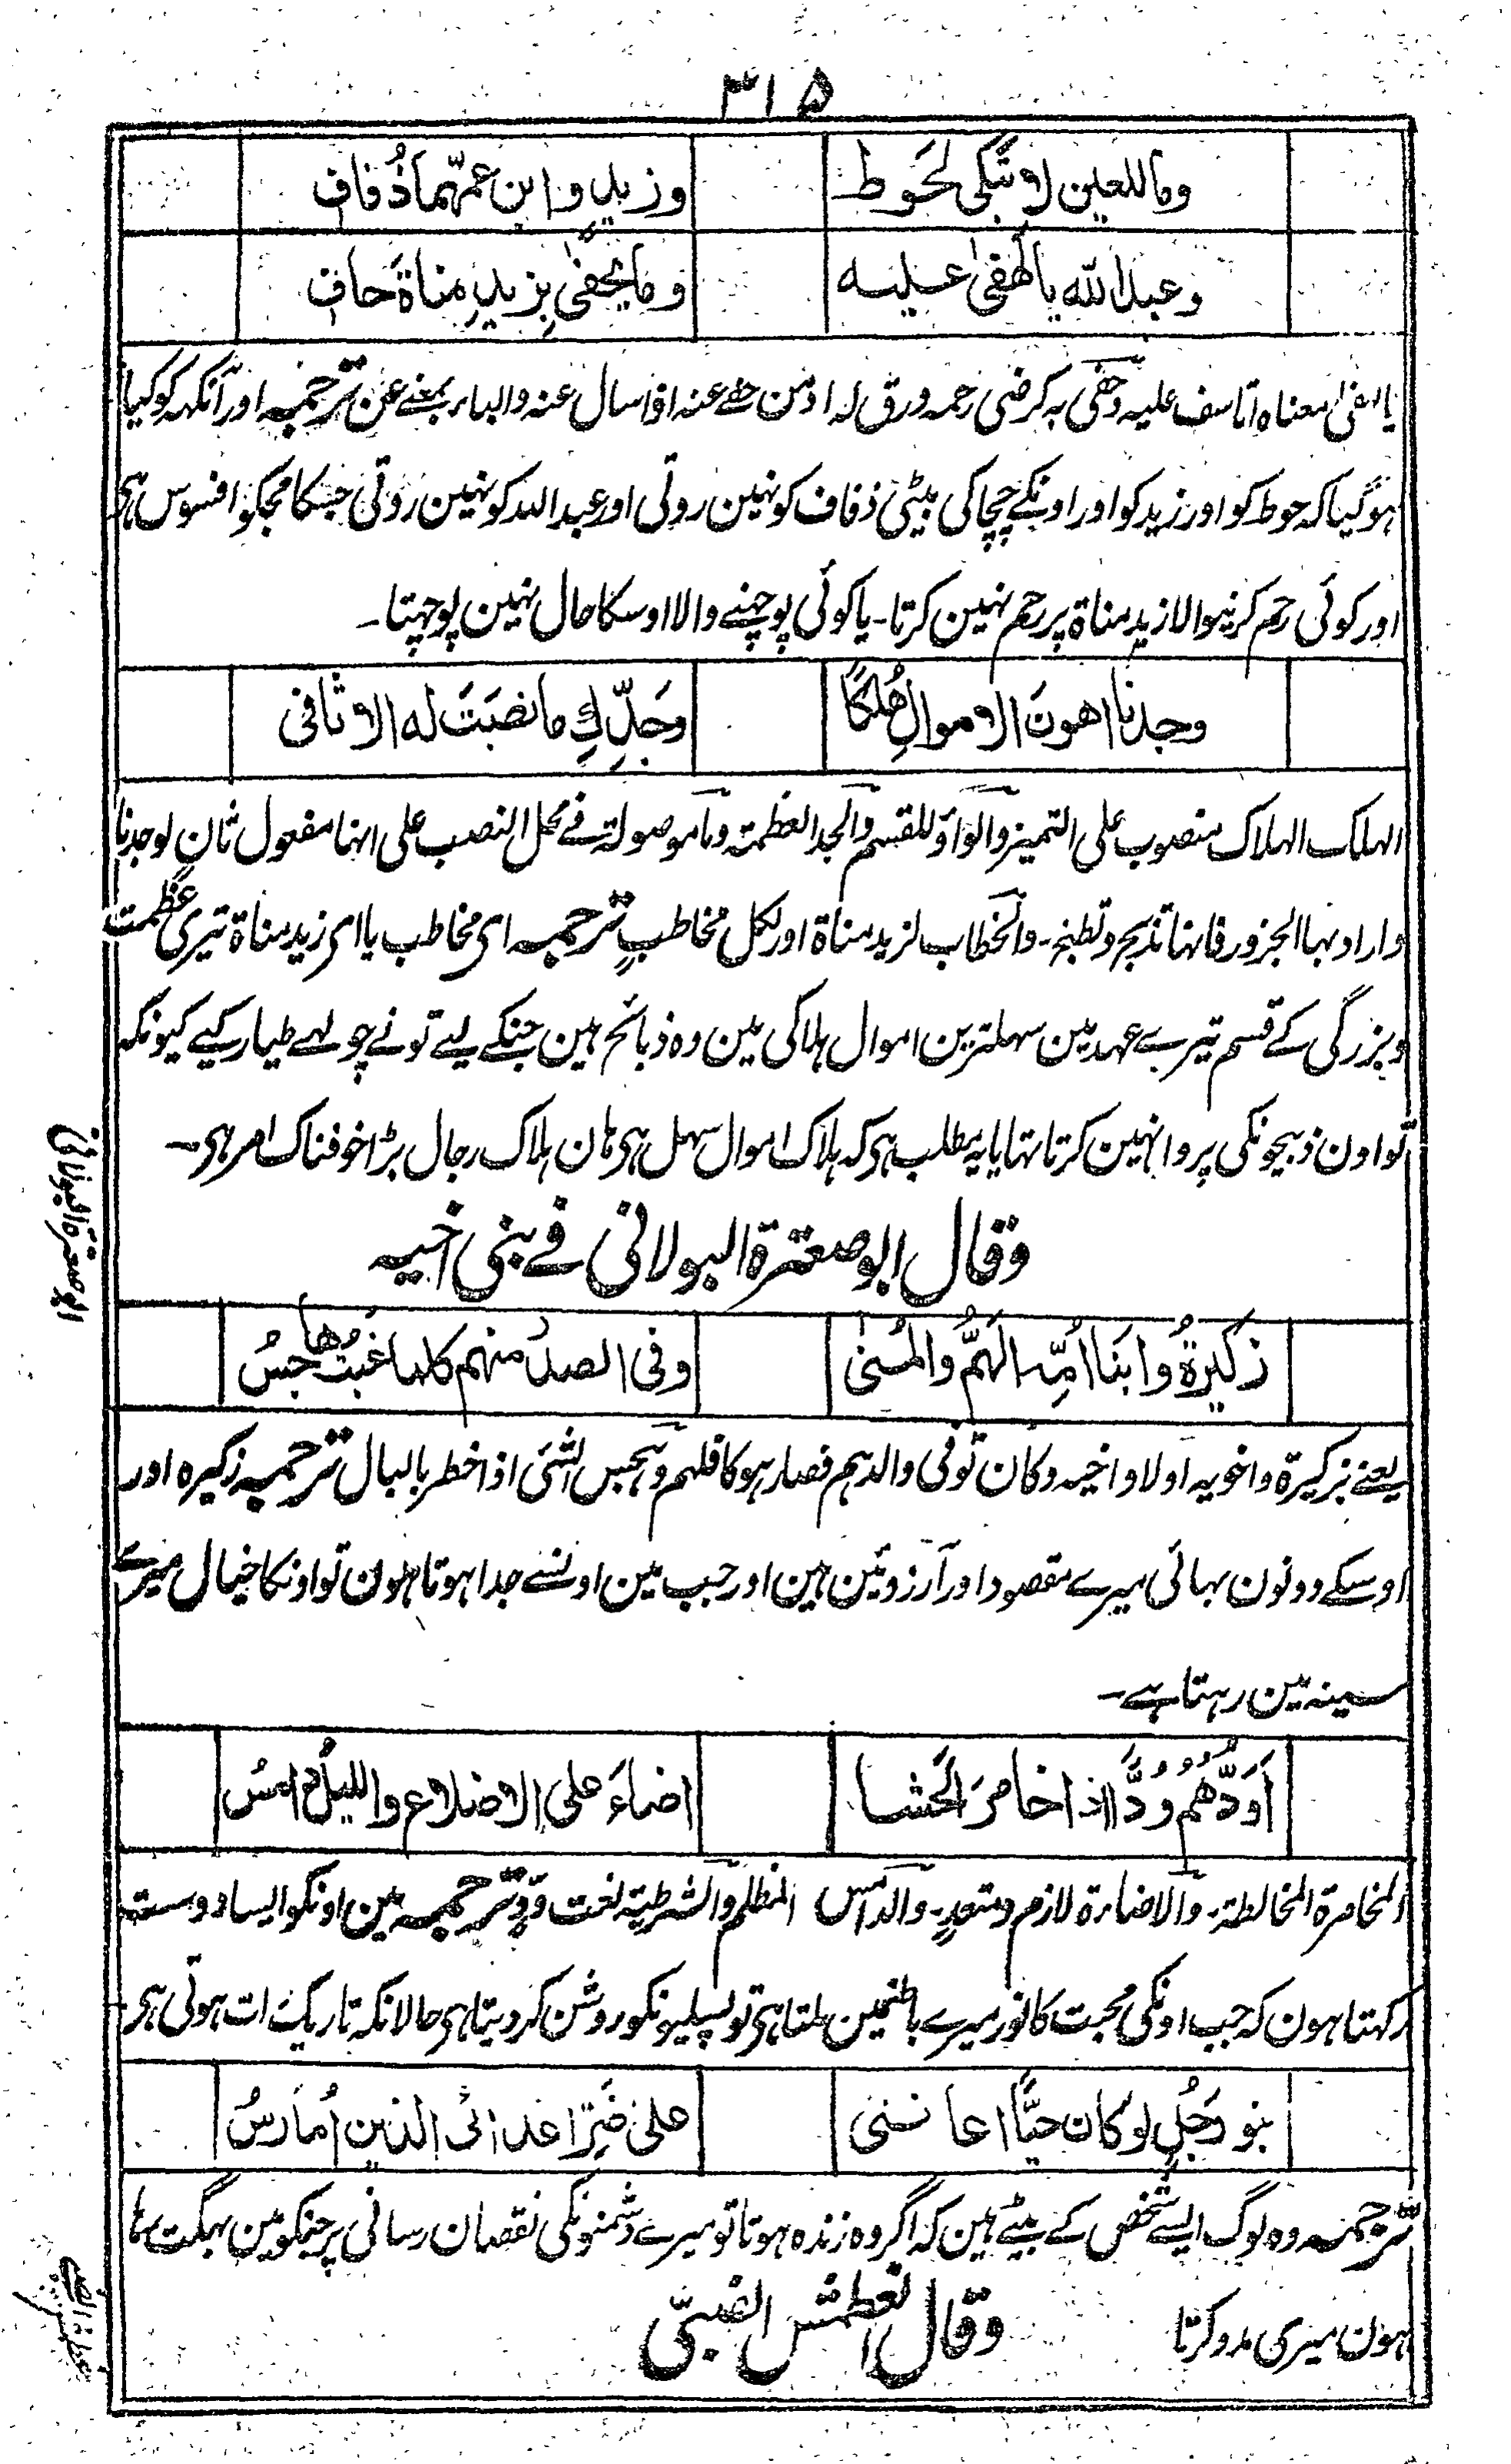 ۳۱۵
وما للعين لا تبكى لحَوط وزيدٍ وابن عمّهما ذُفاف
وعبد الله يا لهفى عليه وما يخفى بزيدِ مناة حاف
يا لهفى معناه اتاسف عليه وحفى به كرضى رحمه ورق له او من حفے عنه اذا سال عنه والباء بمعنے عن ترجمہ اور آنکہہ کو کیا
ہوگیا کہ حوط کو اور زید کو اور اونکے چچا کی بیٹی ذفاف کو نہین روتی اور عبد اللہ کو نہین روتی جسکا مجکو افسوس ہی
اور کوئی رحم کرنیوالا زید مناة پر رحم نہین کرتا۔ یا کوئی پوچہنے والا اوسکا حال نہین پوچہتا۔
وجدنا اهونَ الاموالِ هُلكًا وجَدِّكِ ما نصبَتَ له الاثافى
الہلک الہلاک منصوب على التميز والواو للقسم والجد العظمة وما موصولة فے محل النصب على انها مفعول ثان لوجدنا
واراد بها الجزور فانها تذبح وتطبخ۔ والخطاب لزيد مناة اور لكل مخاطبٍ ترجمہ اى مخاطب یا اى زید مناة تیری عظمت
وبزرگی کے قسم تیرے عہد مین سہلترین اموال ہلاکی مین وہ ذبائح ہین جنکے لیے تونے چولہے طیار کیے کیونکہ
تو اون ذبیحونکی پروا نہین کرتا تہا یا یہ مطلب ہی کہ ہلاک اموال سہل ہی ہان ہلاک رجال بڑا خوفناک امر ہی۔
وقال ابو صعترة البولانى فے بنى اخيه
ابو صعترة البولانى
زكيرةُ وابنَا امّه الهَمُّ والمُنىٰ وفى الصدر منهم كلما غبتُ هاجسُ
يعنے بزكيرة واخويه اولاد اخيه وكان توفى والدهم فصار هو كافلهم وهجس الشئ اذا خطر بالبال ترجمہ زکیرہ اور
اوسکے دونون بہائی میرے مقصود اور آرزوئین ہین اور جب مین اونسے جدا ہوتا ہون تو اونکا خیال میرے
سینہ مین رہتا ہے۔
اَوَدُّهُم وُدًّا اذا خامرَ الحَشا اضاءَ على الاضلاع والليل دامسُ
المخامرة المخالطة۔ والاضاءة لازم ومتعدٍ۔ والدامس المظلم والشرطية نعت ودٍّ ترجمہ مین اونکو ایسا دوست
رکہتا ہون کہ جب اونکی محبت کا نور میرے باطنمین ملتا ہی تو پسلیونکو روشن کردیتا ہی حالانکہ تاریک رات ہوتی ہی
بنو رَجُلٍ لو كان حيًّا اعاننى على ضَرِّ اعدائى الذين اُمارسُ
ترجمہ وہ لوگ ایسے شخص کے بیٹے ہین کہ اگر وہ زندہ ہوتا تو میرے دشمنونکی نقصان رسانی پر جنکو مین بہگت رہا
ہون میری مدد کرتا وقال الغطمش الضبّى